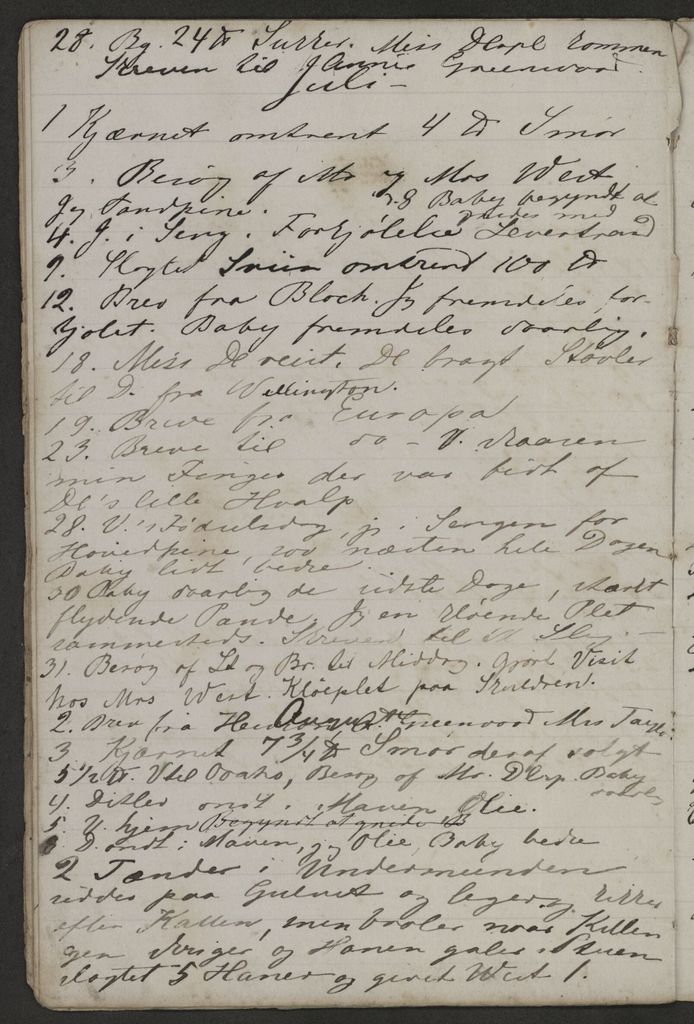 28. Bg. 24 ℔ Sukker. Miss Dlapl kommen
Skreven til Annie Greenwood.
Juli –
1 Kjærnet omtrent 4 ℔ Smør
3. Besøg af Mr og Mrs West
Jeg Tandpine. 8 Baby begyndt at
gnides med
4. J. i Seng. Forkjølelse Levertran
9. Slagtet Sviin omtrent 100 ℔
12. Brev fra Bloch. Jeg fremdeles for-
kjølet. Baby fremdeles daarlig.
18. Miss Dl reist. Dl bragt Støvler
til D. fra Wellington.
19. Breve fra Europa
23. Breve til do – V. skaaren
min Finger der var bidt af
Dl's lille Hvalp
28. V.'s Fødselsdag, jeg i Sengen for
Hovedpine, sov næsten hele Dagen
Baby lidt bedre.
30 Baby daarlig de sidste Dage, stærkt
flydende Pande. Jeg en kløende Plet
sammesteds. Skreven til
31. Besøg af St og Br. til Middag. Gjort Visit
hos Mrs West. Kløeplet paa Skuldren.
August
2. Brev fra Greenwood Mrs
3 Kjærnet 7 3/4 ℔ Smør deraf solgt
5 1/2 ℔. V til Besøg af Mr. Baby
daarlig
4. Ditlev ondt i Maven Olie.
5. V. hjem Begyndt at gnide B
D. ondt i Maven, jeg Olie, Baby bedre
2 Tænder i Undermunden
siddes paa Gulvet og leger,
efter Katten, men bröler naar Killen
gen skriger, og Hanen galer i Stuen
slagtet 5 Haner og givet West 1.